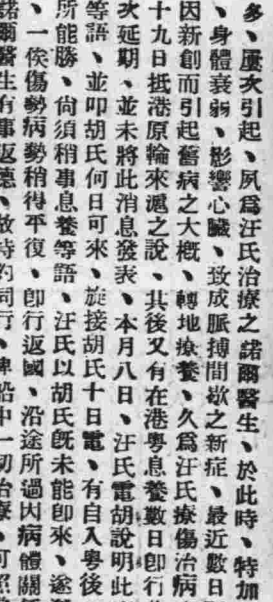 多、屢次引起、夙爲汪氏治療之諾爾醫生、於此時、特加
、身體衰弱、影響心臟、致成脈搏間歇之新症、最近數日
因新創而引起舊病之大概、轉地療養、久爲汪氏療傷治病
十九日抵港原輪來滬之說、其後又有在港粤息養數日卽行
次延期、並未將此消息發表、本月八日、汪氏電胡說明此
等語、並叩胡氏何日可來、旋接胡氏十日電、有自入粤後
所能勝、尙須稍事息養等語、汪氏以胡氏旣未能卽來、遂
、一俟傷勢病勢稍得平復、卽行返國、沿途所過因病體關
諾爾醫生有事返德、故特約同行、俾船中一切治療、可照